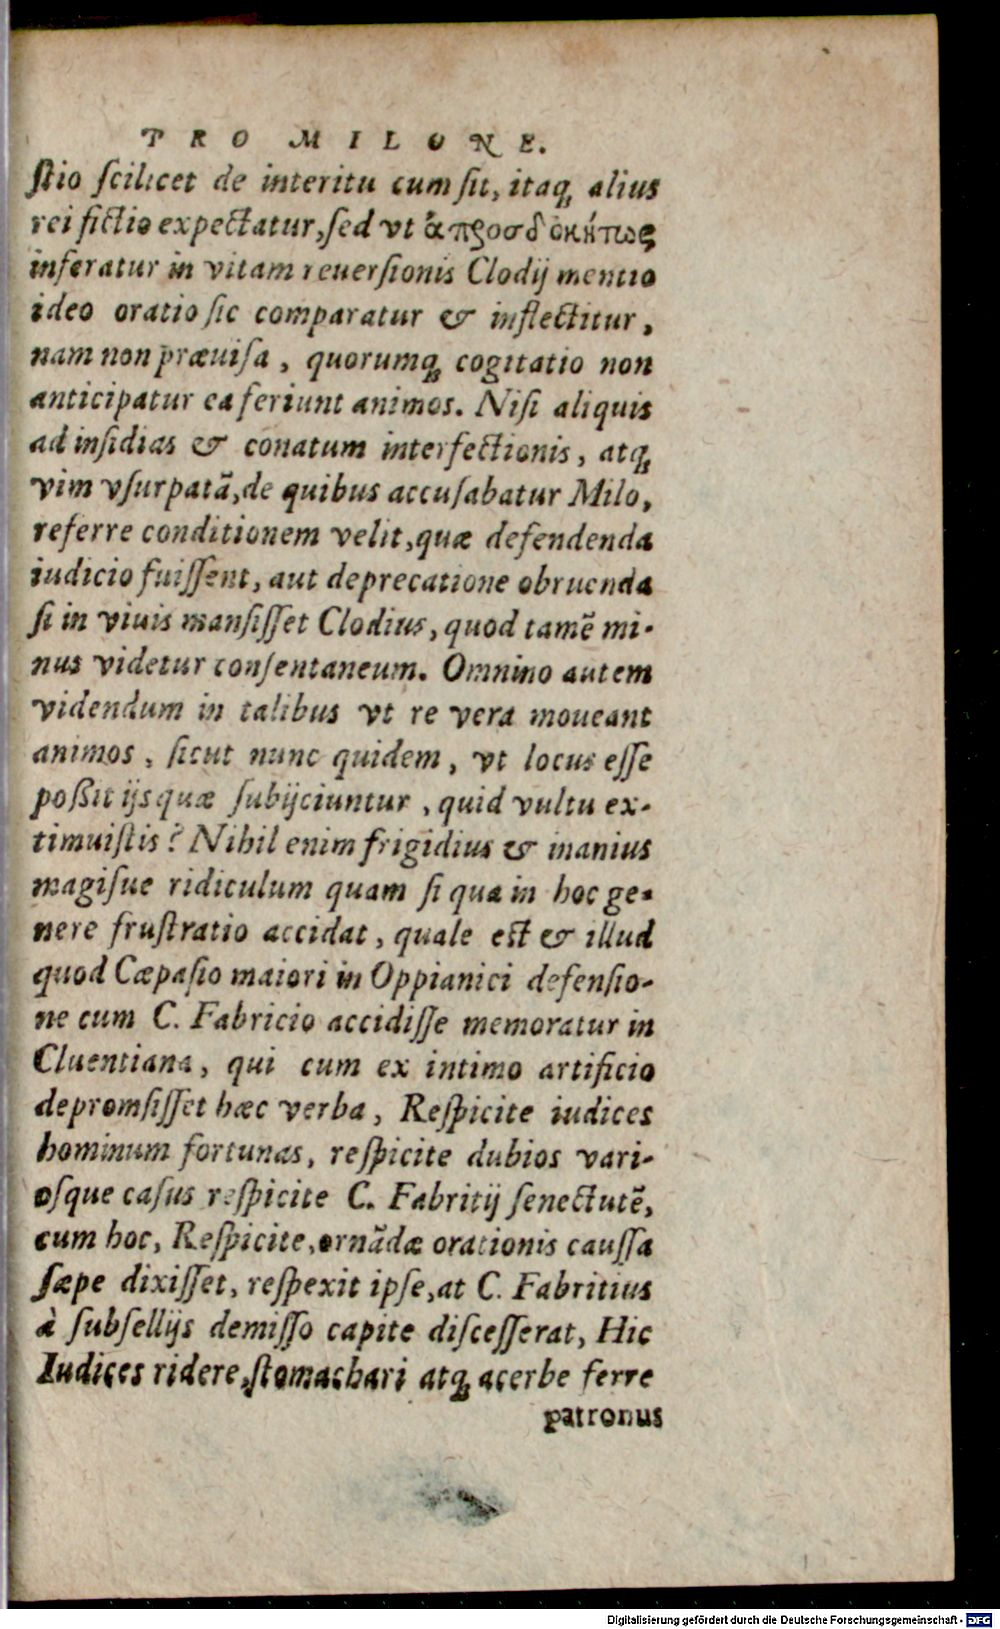 PRO MILONE.
ſtio ſcilicet de interitu cum ſit, itaq; alius
rei fictio expectatur, ſed vt ἀπροσδοκήτως
inferatur in vitam reuerſionis Clodij mentio
ideo oratio ſic comparatur & inflectitur,
nam non præuiſa, quorumq; cogitatio non
anticipatur ea feriunt animos. Niſi aliquis
ad inſidias & conatum interfectionis, atq;
vim vſurpatã, de quibus accuſabatur Milo,
referre conditionem velit, quæ defendenda
iudicio fuiſſent, aut deprecatione obruenda
ſi in viuis manſiſſet Clodius, quod tamẽ mi-
nus videtur conſentaneum. Omnino autem
videndum in talibus vt re vera moueant
animos, ſicut nunc quidem, vt locus eſſe
poßit ijs quæ ſubijciuntur, quid vultu ex-
timuiſtis? Nihil enim frigidius & inanius
magiſue ridiculum quam ſi qua in hoc ge-
nere fruſtratio accidat, quale eſt & illud
quod Cæpaſio maiori in Oppianici defenſio-
ne cum C. Fabricio accidiſſe memoratur in
Cluentiana, qui cum ex intimo artificio
depromſiſſet hæc verba, Reſpicite iudices
hominum fortunas, reſpicite dubios vari-
oſque caſus reſpicite C. Fabritij ſenectutẽ,
cum hoc, Reſpicite, ornãdæ orationis cauſſa
ſæpe dixiſſet, reſpexit ipſe, at C. Fabritius
à ſubſellijs demiſſo capite diſceſſerat, Hic
Iudices ridere, ſtomachari atq; acerbe ferre
patronus
Digitalisierung gefördert durch die Deutsche Forschungsgemeinschaft - DFG